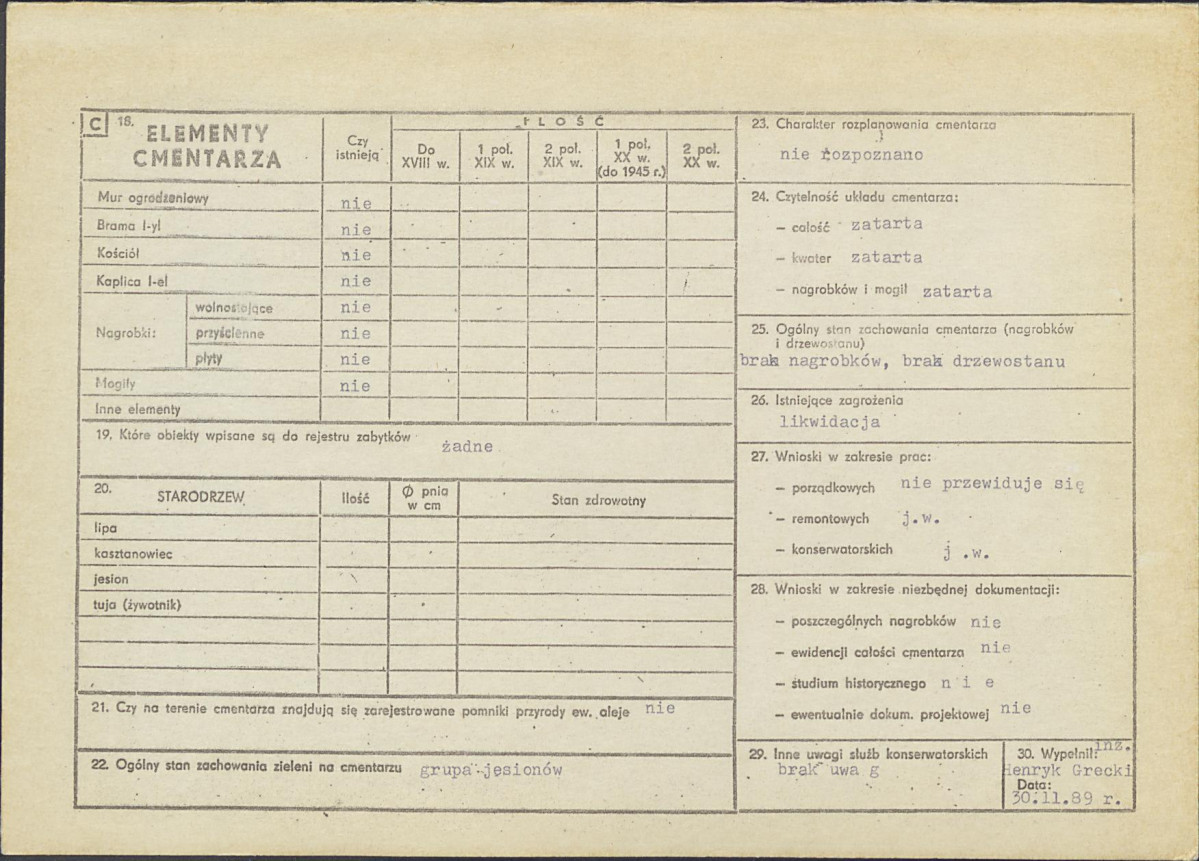 C 18. ELEMENTY CMENTARZA
Czy istnieją
ILOŚĆ
Do XVIII w.
1 poł. XIX w.
2 poł. XIX w.
1 poł. XX w. (do 1945 r.)
2 poł. XX w.
Mur ogrodzeniowy nie
Brama I-yl nie
Kościół nie
Kaplica I-el nie
Nagrobki:
wolnostojące nie
przyścienne nie
płyty nie
Mogiły nie
Inne elementy
19. Które obiekty wpisane są do rejestru zabytków żadne
20. STARODRZEW Ilość Ø pnia w cm Stan zdrowotny
lipa
kasztanowiec
jesion
tuja (żywotnik)
21. Czy na terenie cmentarza znajdują się zarejestrowane pomniki przyrody ew. aleje nie
22. Ogólny stan zachowania zieleni na cmentarzu grupa jesionów
23. Charakter rozplanowania cmentarza
nie rozpoznano
24. Czytelność układu cmentarza:
– całość zatarta
– kwater zatarta
– nagrobków i mogił zatarta
25. Ogólny stan zachowania cmentarza (nagrobków
i drzewostanu)
brak nagrobków, brak drzewostanu
26. Istniejące zagrożenia
likwidacja
27. Wnioski w zakresie prac:
– porządkowych nie przewiduje się
– remontowych j.w.
– konserwatorskich j .w.
28. Wnioski w zakresie niezbędnej dokumentacji:
– poszczególnych nagrobków nie
– ewidencji całości cmentarza nie
– studium historycznego n i e
– ewentualnie dokum. projektowej nie
29. Inne uwagi służb konserwatorskich
brak uwa g
30. Wypełnił: inż.
Henryk Grecki
Data:
30.11.89 r.